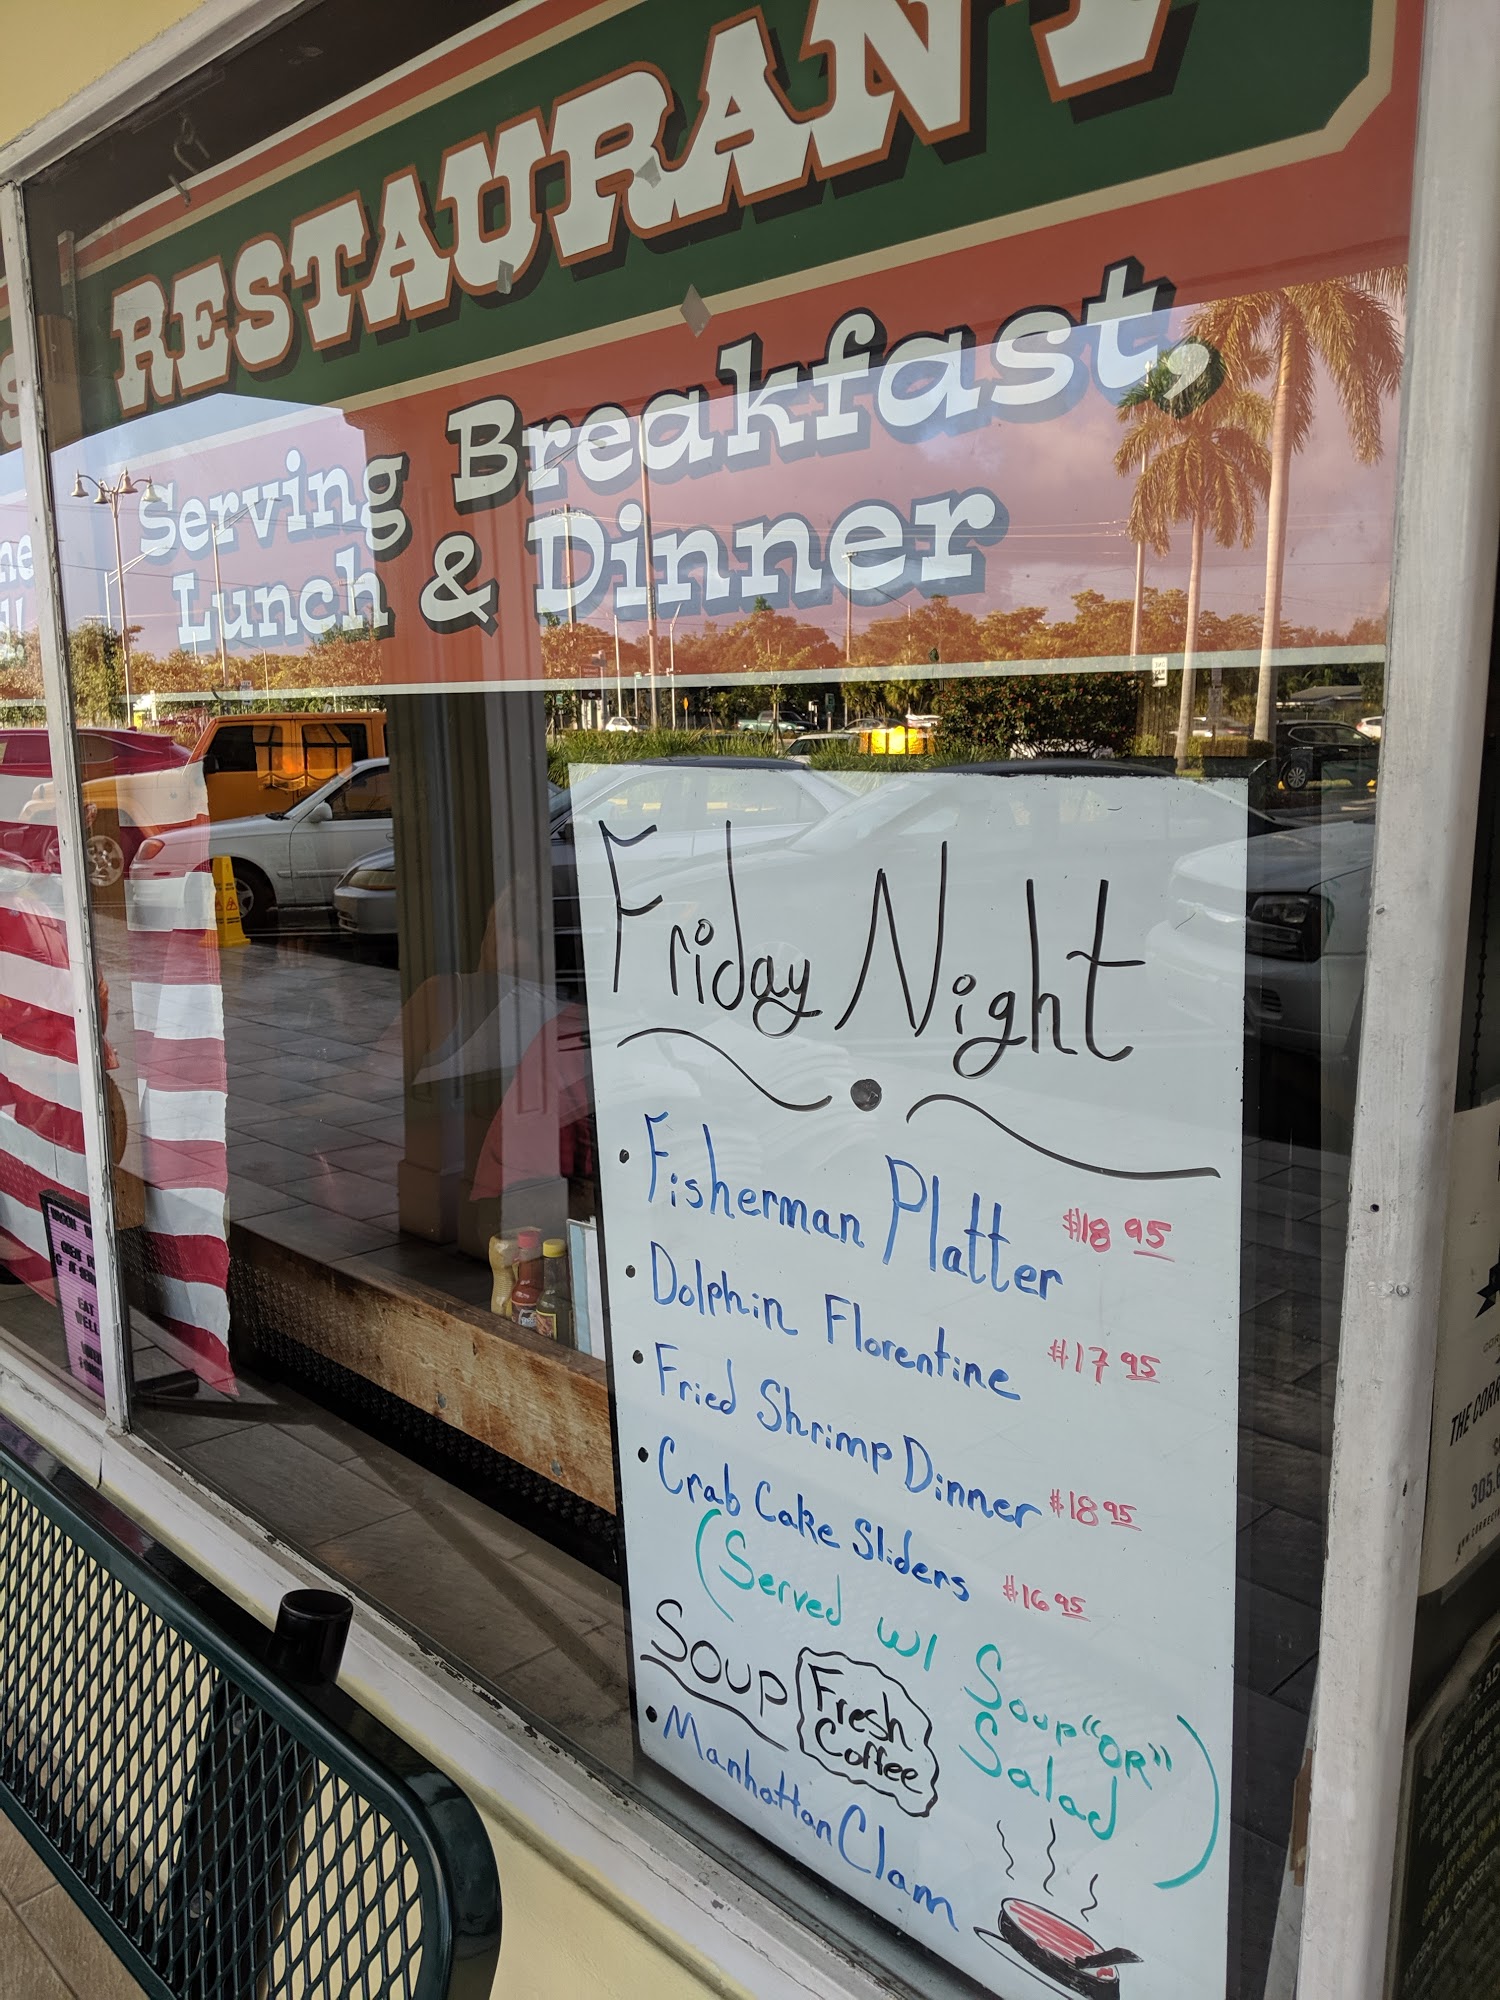 RESTAURANT
Serving Breakfast,
Lunch & Dinner
Friday Night
• Fisherman Platter $18 95
• Dolphin Florentine $17 95
• Fried Shrimp Dinner $18 95
• Crab Cake Sliders $16 95
(Served w/ Soup "OR" Salad)
Soup
Fresh
Coffee
• Manhattan Clam
EAT
WELL
THE CORR
305.